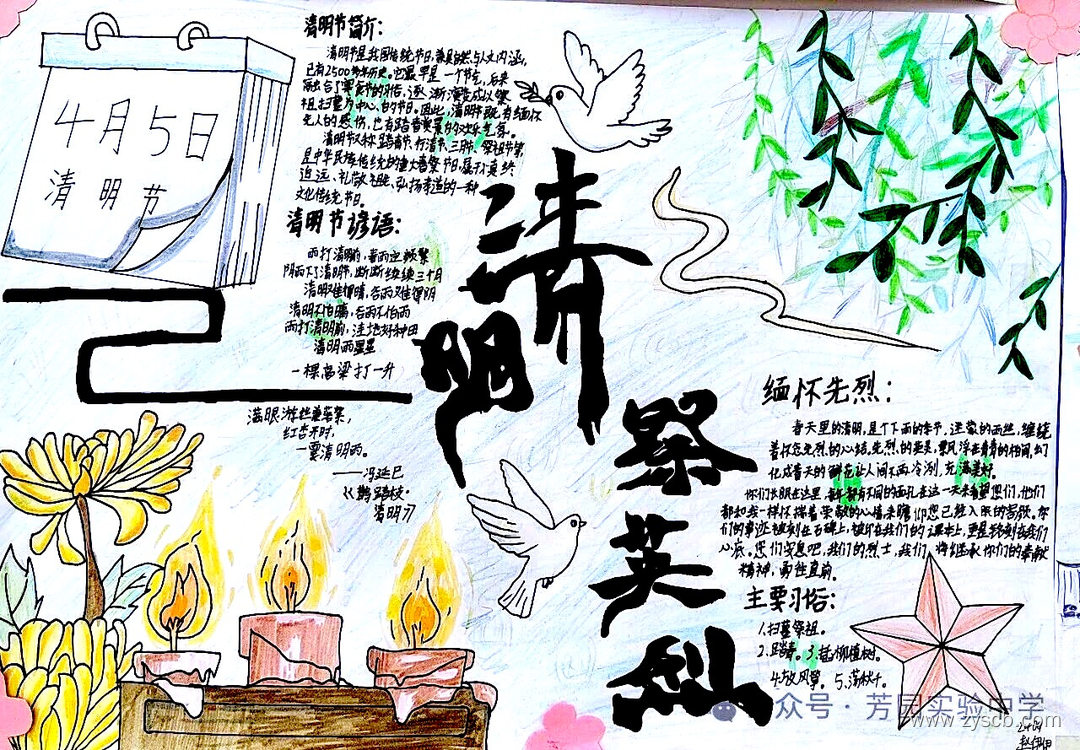 4月5日
清明节
清明节简介:
清明节是我国传统节日,兼具自然与人文内涵,
已有2500多年历史。它最早是一个节气,后来
融合了寒食节的习俗,逐渐演变成以祭
祖、扫墓为中心的节日。因此,清明节既有缅怀
先人的感伤,也有踏青赏景的欢乐气氛。
清明节又称踏青节、行清节、三月节、祭祖节等,
是中华民族传统的重大春祭节日,属于慎终
追远、礼敬祖先、弘扬孝道的一种
文化传统节日。
清明节谚语:
雨打清明前,春雨定频繁
阴雨下了清明节,断断续续三个月
清明难得晴,谷雨难得阴
清明不怕晴,谷雨不怕雨
雨打清明前,洼地好种田
清明雨星星
一棵高粱打一升
满眼游丝兼落絮,
红杏开时,
一霎清明雨。
——冯延巳
《鹊踏枝·
清明》
清明
祭英烈
缅怀先烈:
春天里的清明,是个下雨的季节,迷蒙的雨丝,缠绕
着怀念先烈的心结,先烈的英灵,飘浮在青青的柏间,幻
化成春天的鲜花,让人间不再冷冽,充满美好。
你们长眠在这里,每年都有不同的面孔在这一天来看望您们,他们
都和我一样怀揣着崇敬的心情来瞻仰您已经入眠的容颜。你
们的事迹被刻在石碑上,被印在我们的课本上,更是铭刻在我们
心底。您们安息吧,我们的烈士,我们,将继承你们的奉献
精神,勇往直前。
主要习俗:
1.扫墓祭祖。
2.踏青。3.插柳植树。
4.放风筝。5.荡秋千。
公众号·芳园实验中学
www.zyscb.com